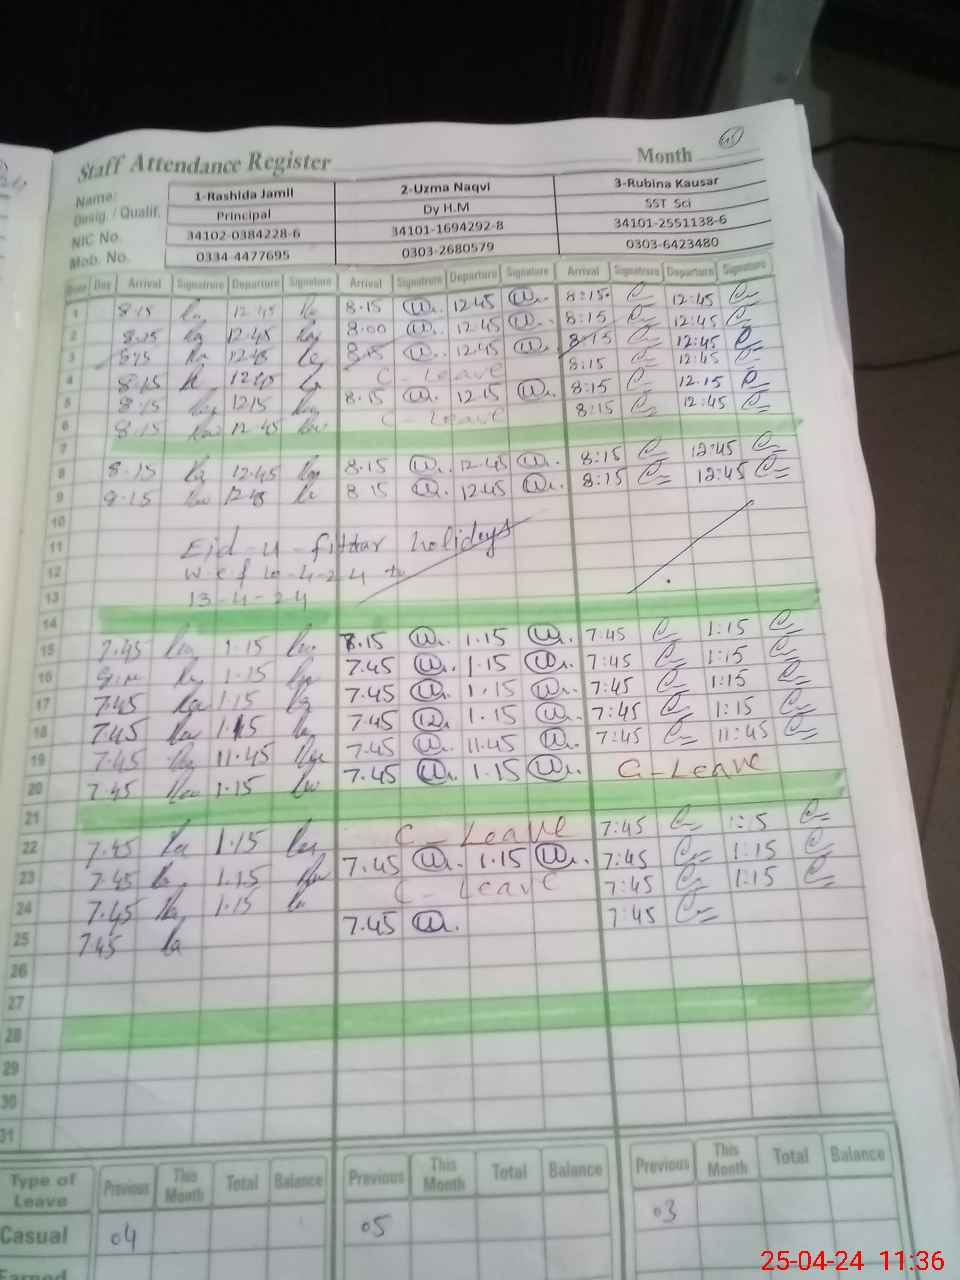 Staff Attendance Register Month
Name: 1-Rashida Jamil 2-Uzma Naqvi 3-Rubina Kausar
Desig. / Qualif. Principal Dy H.M SST Sci
NIC No. 34102-0384228-6 34101-1694292-8 34101-2551138-6
Mob. No. 0334-4477695 0303-2680579 0303-6423480
Date Day Arrival Signatrure Departure Signature Arrival Signatrure Departure Signature Arrival Signatrure Departure Signature
1 8.15 12.45 8.15 12.45 8:15 12:45
2 8.15 12.45 8.00 12.45 8:15 12:45
3 8.15 12.45 8.15 12.45 8:15 12:45
4 8.15 12.45 C-Leave 8:15 12:45
5 8.15 12.15 8.15 12.15 8:15 12.15
6 8.15 12.45 C-Leave 8:15 12:45
7
8 8.15 12.45 8.15 12.45 8:15 12:45
9 8.15 12.45 8.15 12.45 8:15 12:45
10
11 Eid-u-fittar holidays
12 w.e.f 10-4-24 to
13 13-4-24
14
15 7.45 1.15 8.15 1.15 7:45 1:15
16 1.15 7.45 1.15 7:45 1:15
17 7.45 1.15 7.45 1.15 7:45 1:15
18 7.45 1.15 7.45 1.15 7:45 1:15
19 7.45 11.45 7.45 11.45 7:45 11:45
20 7.45 1.15 7.45 1.15 C-Leave
21
22 7.45 1.15 C-Leave 7:45 1:15
23 7.45 1.15 7.45 1.15 7:45 1:15
24 7.45 1.15 C-Leave 7:45 1:15
25 7.45 7.45 7:45
26
27
28
29
30
31
Type of Leave Previous This Month Total Balance Previous This Month Total Balance Previous This Month Total Balance
Casual 04 05 03
Earned
25-04-24 11:36